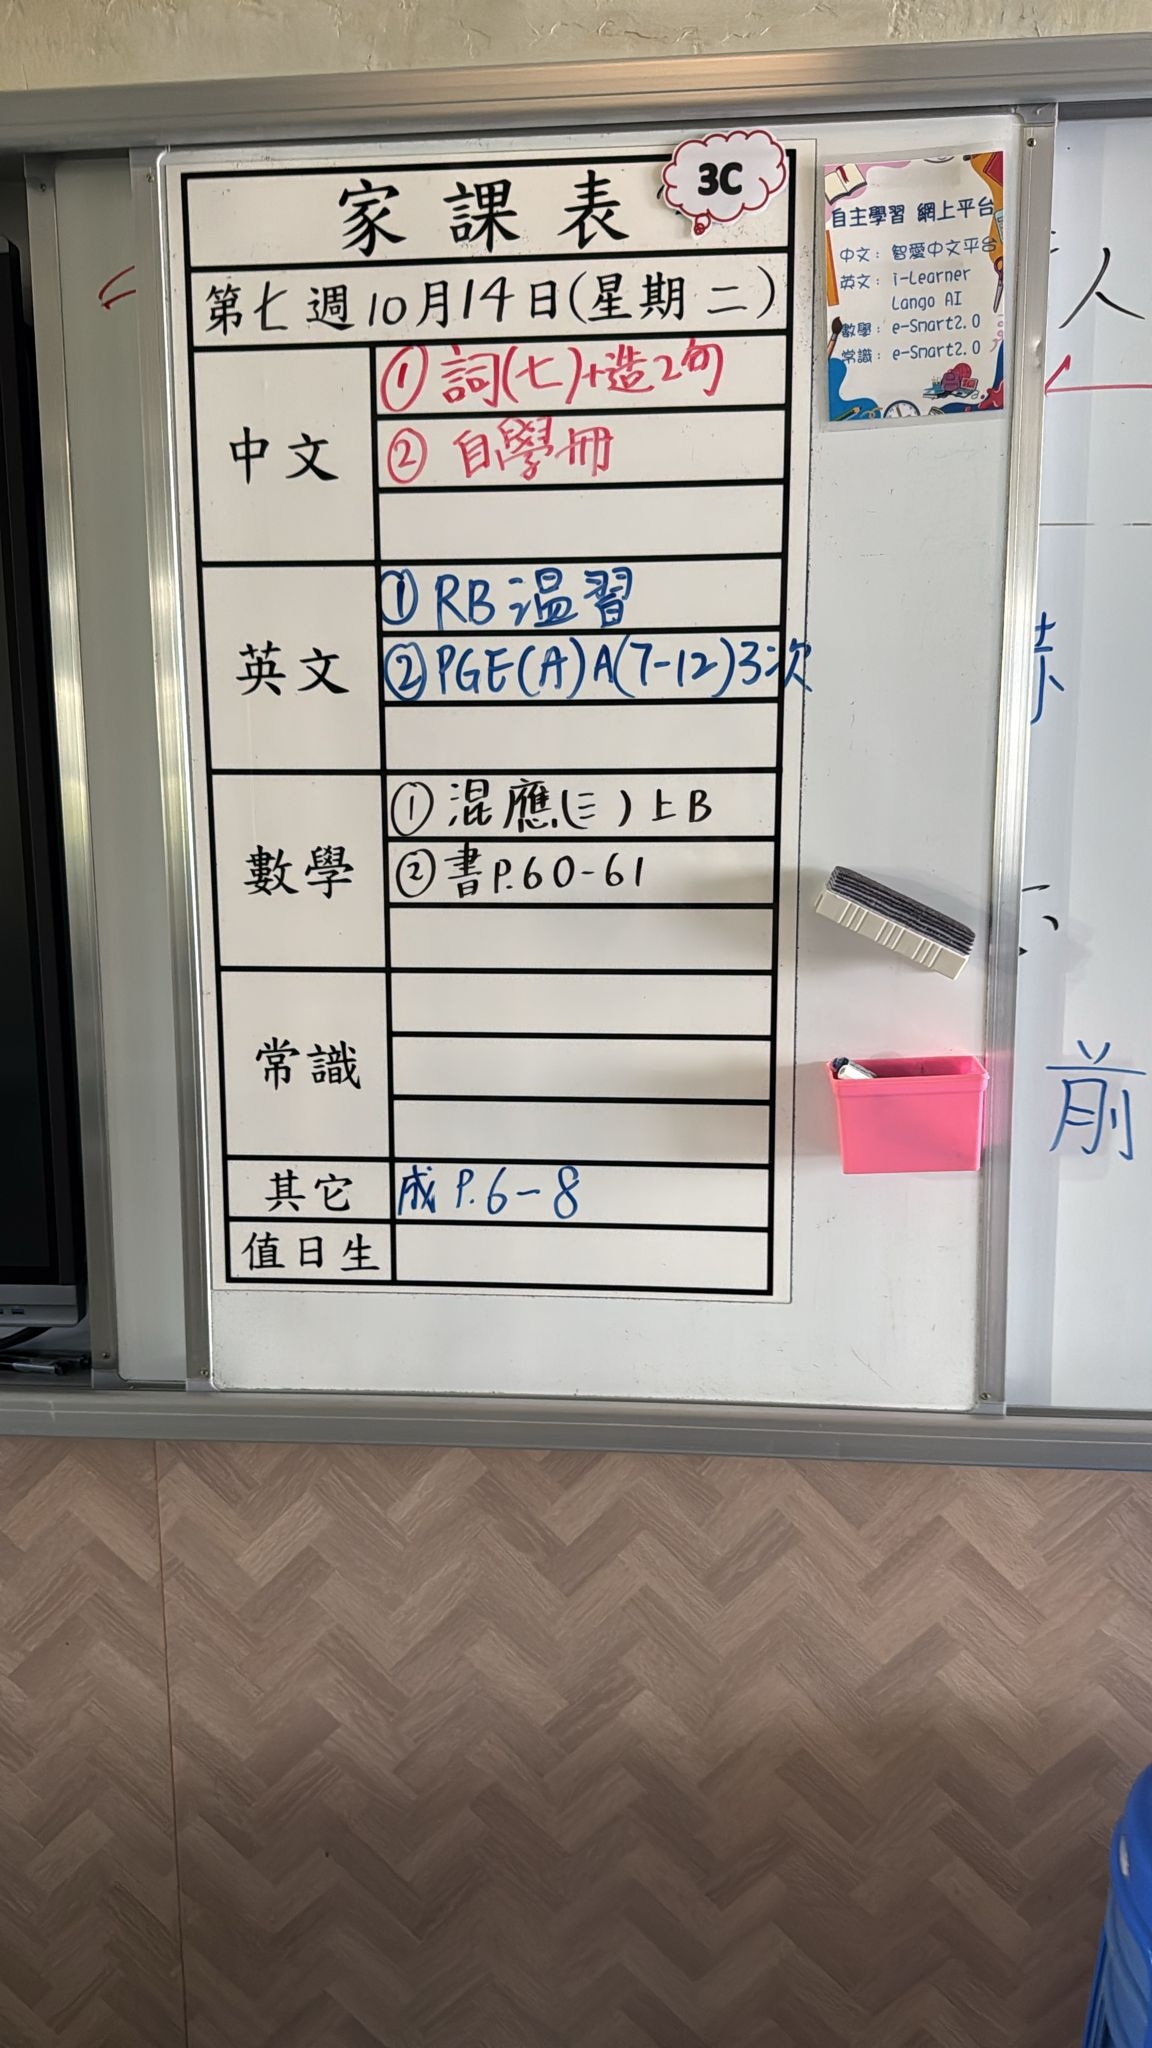 家課表
3C
第七週10月14日(星期二)
中文
①詞(七)+造2句
②自學冊
英文
①RB溫習
②PGE(A)A(7-12)3次
數學
①混應(三)上B
②書P.60-61
常識
其它
成P.6-8
值日生
自主學習 網上平台
中文：智愛中文平台
英文：i-Learner
Lango AI
數學：e-Smart2.0
常識：e-Smart2.0
人
前